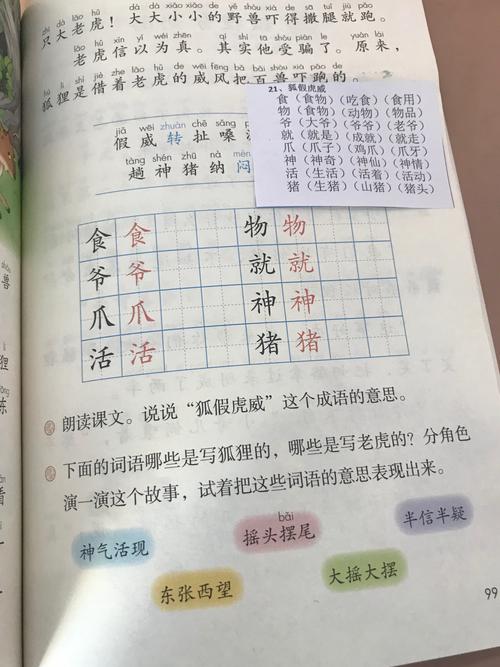 dà dà lǎo hǔ dà dà xiǎo xiǎo de yě shòu xià dé sā tuǐ jiù pǎo
只大老虎！大大小小的野兽吓得撒腿就跑。
lǎo hǔ xìn yǐ wéi zhēn qí shí tā shòu piàn le yuán lái
老虎信以为真。其实他受骗了。原来，
hú li shì jiè zhe lǎo hǔ de wēi fēng bǎ bǎi shòu xià pǎo de
狐狸是借着老虎的威风把百兽吓跑的。
jiǎ wēi zhuàn chě sǎng
假威转扯嗓
tàng shén zhū nà mèn
趟神猪纳闷
21、狐假虎威
食（食物）（吃食）（食用）
物（食物）（动物）（物品）
爷（大爷）（爷爷）（老爷）
就（就是）（成就）（就走）
爪（爪子）（鸡爪）（爪牙）
神（神奇）（神仙）（神情）
活（生活）（活着）（活动）
猪（生猪）（山猪）（猪头）
食食 物物
爷爷 就就
爪爪 神神
活活 猪猪
朗读课文。说说“狐假虎威”这个成语的意思。
下面的词语哪些是写狐狸的，哪些是写老虎的？分角色
演一演这个故事，试着把这些词语的意思表现出来。
bǎi
神气活现 摇头摆尾 半信半疑
东张西望 大摇大摆
99